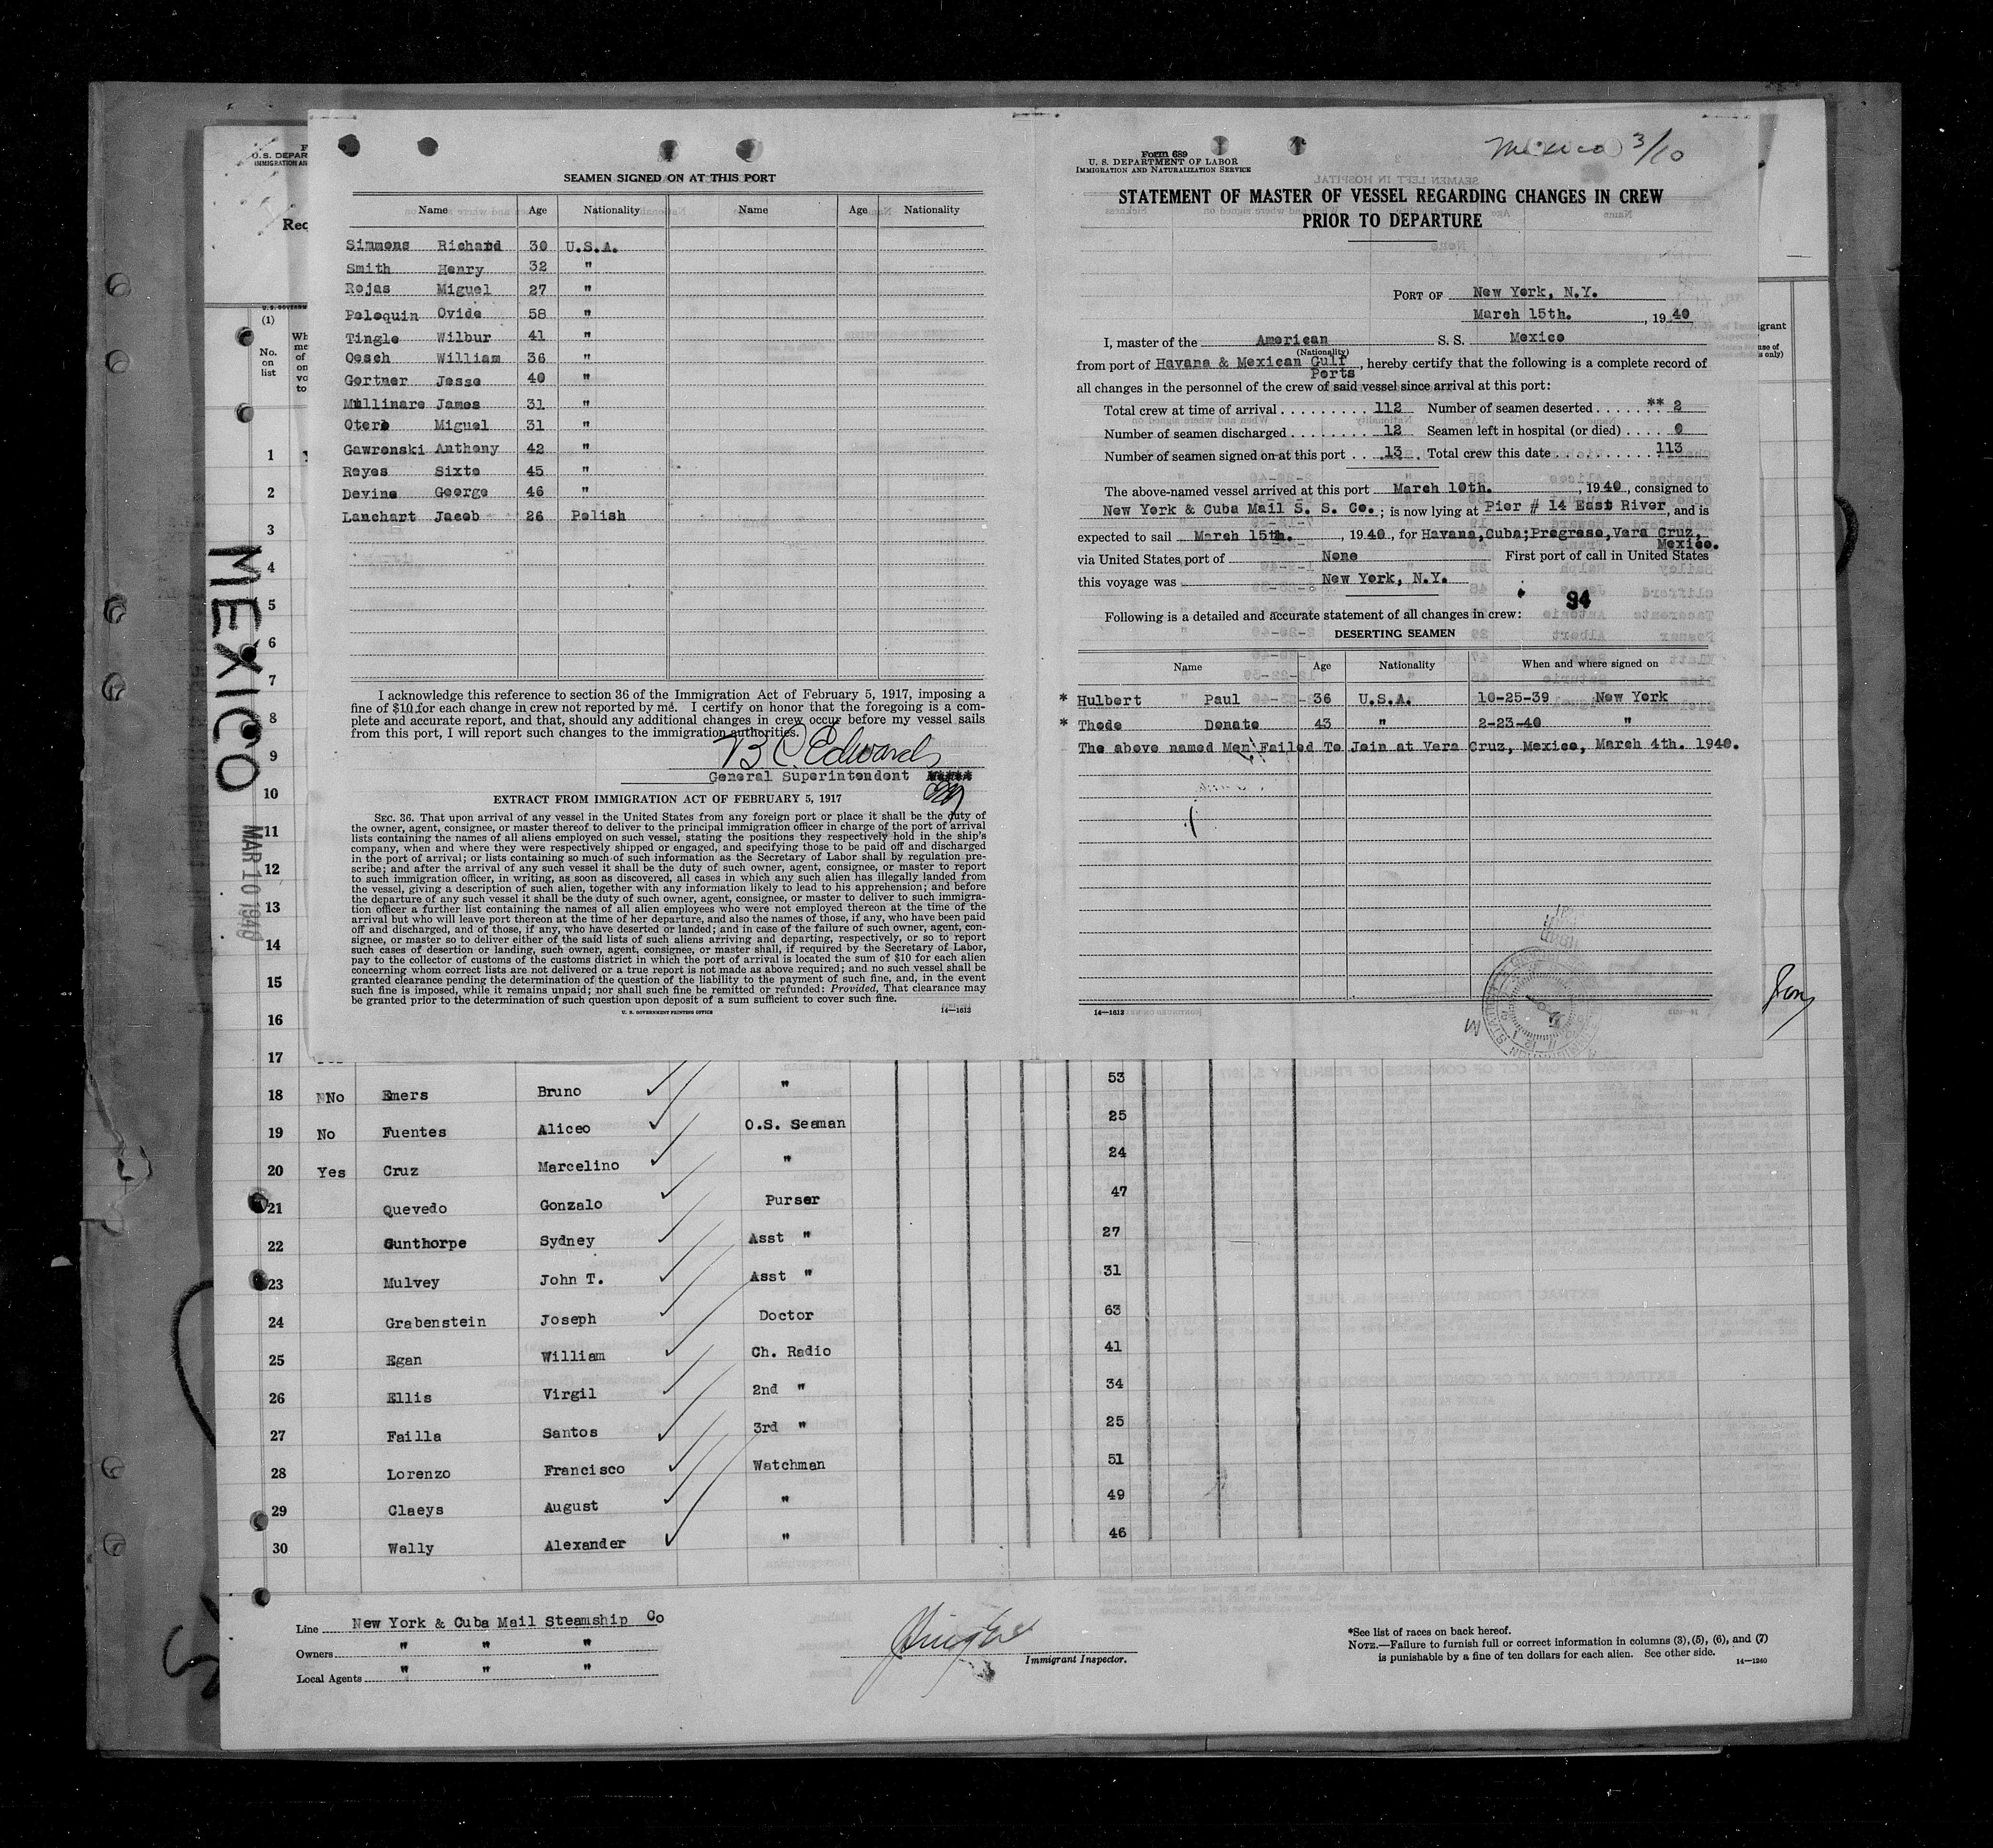 SEAMEN SIGNED ON AT THIS PORT
Name Age Nationality Name Age Nationality
Simmons Richard 30 U.S.A.
Smith Henry 32 "
Rojas Miguel 27 "
Peloquin Ovide 58 "
Tingle Wilbur 41 "
Oesch William 36 "
Gortner Jesse 40 "
Mullinare James 31 "
Otero Miguel 31 "
Gawronski Anthony 42 "
Reyes Sixto 45 "
Devine George 46 "
Lanchart Jacob 26 Polish
I acknowledge this reference to section 36 of the Immigration Act of February 5, 1917, imposing a
fine of $10 for each change in crew not reported by me. I certify on honor that the foregoing is a com-
plete and accurate report, and that, should any additional changes in crew occur before my vessel sails
from this port, I will report such changes to the immigration authorities.
B C Edwards
General Superintendent
EXTRACT FROM IMMIGRATION ACT OF FEBRUARY 5, 1917
SEC. 36. That upon arrival of any vessel in the United States from any foreign port or place it shall be the duty of
the owner, agent, consignee, or master thereof to deliver to the principal immigration officer in charge of the port of arrival
lists containing the names of all aliens employed on such vessel, stating the positions they respectively hold in the ship's
company, when and where they were respectively shipped or engaged, and specifying those to be paid off and discharged
in the port of arrival; or lists containing so much of such information as the Secretary of Labor shall by regulation pre-
scribe; and after the arrival of any such vessel it shall be the duty of such owner, agent, consignee, or master to report
to such immigration officer, in writing, as soon as discovered, all cases in which any such alien has illegally landed from
the vessel, giving a description of such alien, together with any information likely to lead to his apprehension; and before
the departure of any such vessel it shall be the duty of such owner, agent, consignee, or master to deliver to such immigra-
tion officer a further list containing the names of all alien employees who were not employed thereon at the time of the
arrival but who will leave port thereon at the time of her departure, and also the names of those, if any, who have been paid
off and discharged, and of those, if any, who have deserted or landed; and in case of the failure of such owner, agent, con-
signee, or master so to deliver either of the said lists of such aliens arriving and departing, respectively, or so to report
such cases of desertion or landing, such owner, agent, consignee, or master shall, if required by the Secretary of Labor,
pay to the collector of customs of the customs district in which the port of arrival is located the sum of $10 for each alien
concerning whom correct lists are not delivered or a true report is not made as above required; and no such vessel shall be
granted clearance pending the determination of the question of the liability to the payment of such fine, and, in the event
such fine is imposed, while it remains unpaid; nor shall such fine be remitted or refunded: Provided, That clearance may
be granted prior to the determination of such question upon deposit of a sum sufficient to cover such fine.
U. S. GOVERNMENT PRINTING OFFICE 14—1613
Mexico 3/10
Form 689
U. S. DEPARTMENT OF LABOR
IMMIGRATION AND NATURALIZATION SERVICE
STATEMENT OF MASTER OF VESSEL REGARDING CHANGES IN CREW
PRIOR TO DEPARTURE
PORT OF New York, N.Y.
March 15th., 1940
I, master of the American S. S. Mexico
(Nationality)
from port of Havana & Mexican Gulf Ports, hereby certify that the following is a complete record of
all changes in the personnel of the crew of said vessel since arrival at this port:
Total crew at time of arrival 112 Number of seamen deserted ** 2
Number of seamen discharged 12 Seamen left in hospital (or died) 0
Number of seamen signed on at this port 13 Total crew this date 113
The above-named vessel arrived at this port March 10th., 1940, consigned to
New York & Cuba Mail S. S. Co.; is now lying at Pier # 14 East River, and is
expected to sail March 15th., 1940, for Havana,Cuba;Progreso,Vera Cruz, Mexico.
via United States port of None First port of call in United States
this voyage was New York, N.Y.
94
Following is a detailed and accurate statement of all changes in crew:
DESERTING SEAMEN
Name Age Nationality When and where signed on
* Hulbert Paul 36 U.S.A. 10-25-39 New York
* Thode Donato 43 " 2-23-40 "
The above named Men Failed To Join at Vera Cruz, Mexico, March 4th. 1940.
14—1613
U.S. DEPAR
IMMIGRATION AN
Rec
(1)
No.
on
list
MEXICO
MAR 10 1940
1
2
3
4
5
6
7
8
9
10
11
12
13
14
15
16
17 53
18 No Emers Bruno " 25
19 No Fuentes Aliceo O.S. Seaman 24
20 Yes Cruz Marcelino " 47
21 Quevedo Gonzalo Purser 27
22 Gunthorpe Sydney Asst " 31
23 Mulvey John T. Asst " 63
24 Grabenstein Joseph Doctor 41
25 Egan William Ch. Radio 34
26 Ellis Virgil 2nd " 25
27 Failla Santos 3rd " 51
28 Lorenzo Francisco Watchman 49
29 Claeys August " 46
30 Wally Alexander "
Line New York & Cuba Mail Steamship Co
Owners " " "
Local Agents " " "
Immigrant Inspector.
*See list of races on back hereof.
NOTE.—Failure to furnish full or correct information in columns (3), (5), (6), and (7)
is punishable by a fine of ten dollars for each alien. See other side.
14—1240